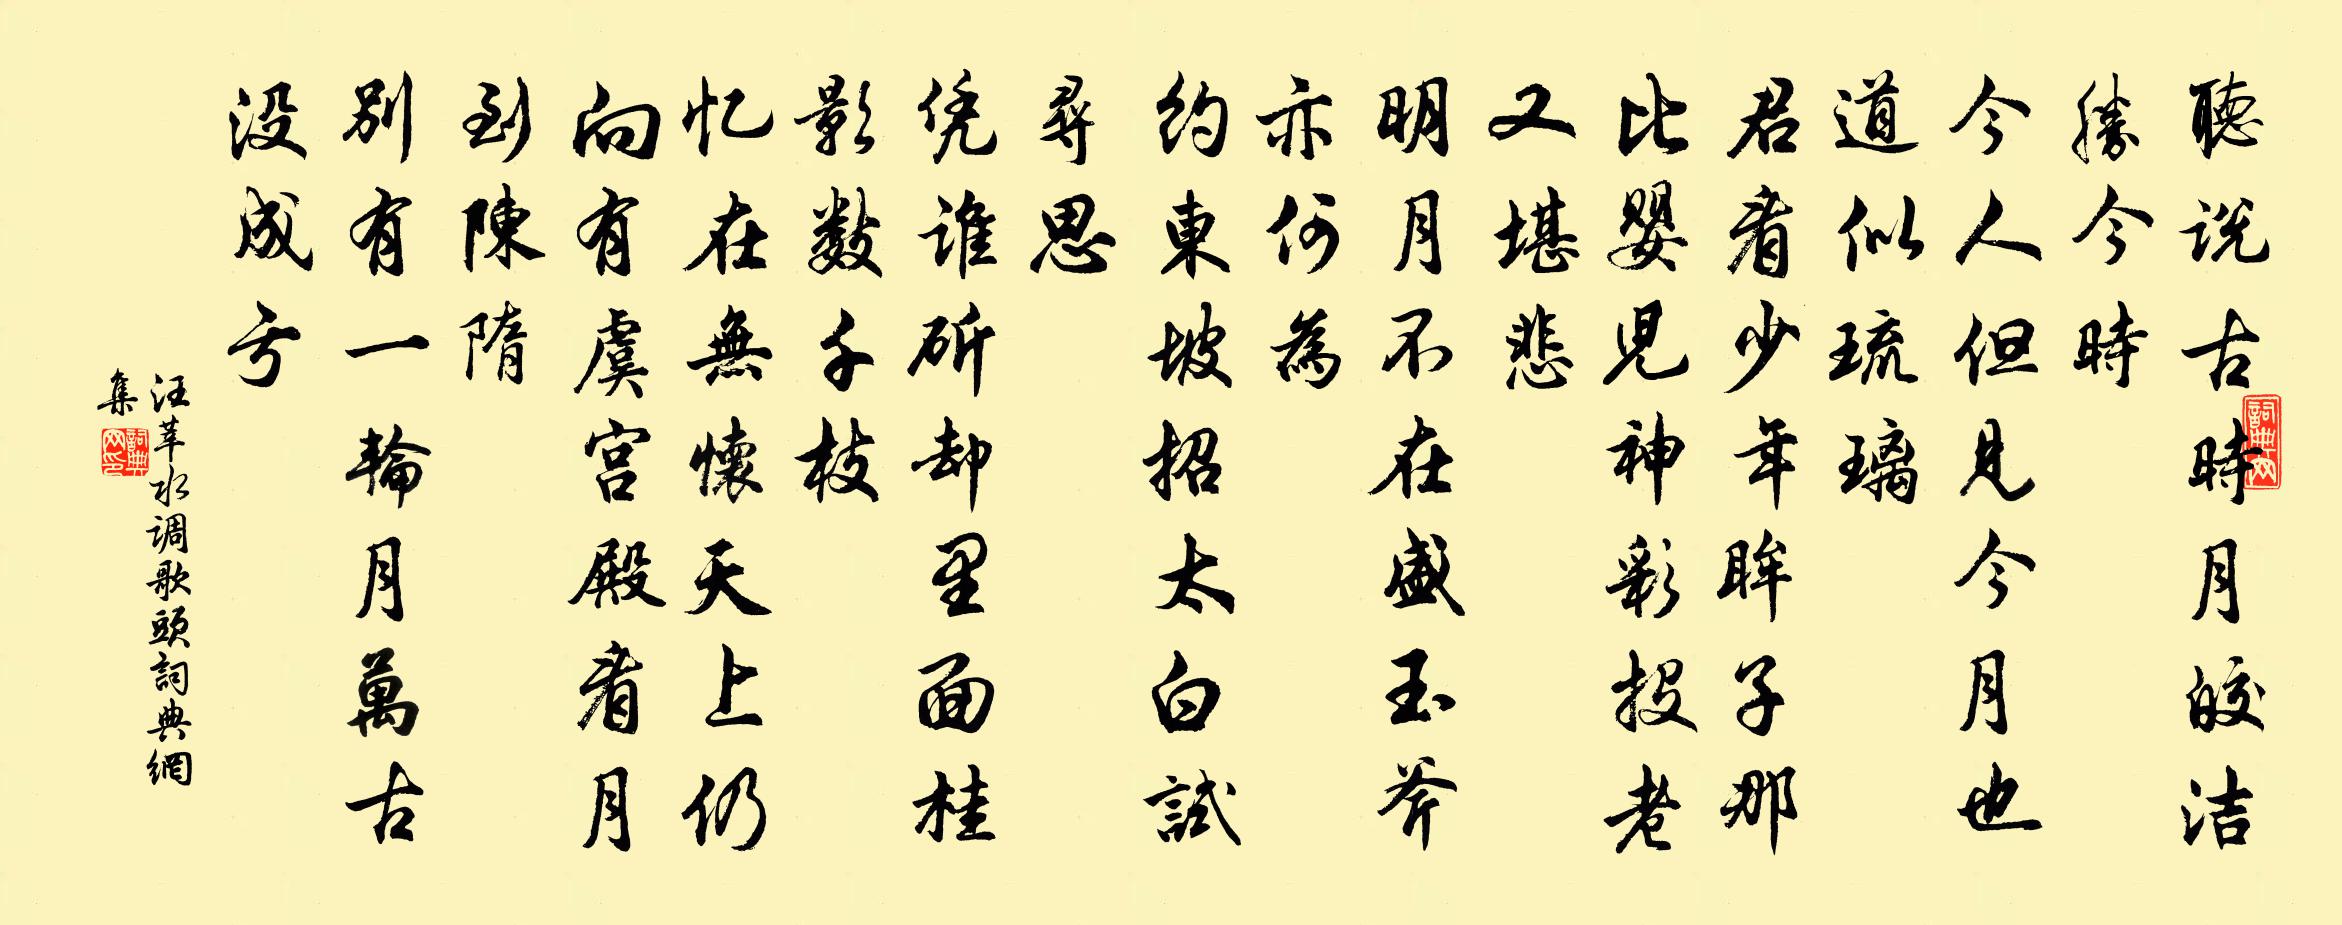 聽説古時月皎洁
勝今時
今人但見今月也
道似琉璃
君看少年眸子那
比嬰児神彩投老
又堪悲
明月不在盛玉斧
亦何為
約東坡招太白試
尋思
凭誰斫却里面桂
影數千枝
忆在無懷天上仍
向有虞宫殿看月
到陳隋
別有一輪月萬古
没成亏
汪莘水调歌頭詞典網
集
詞典网
詞典网印